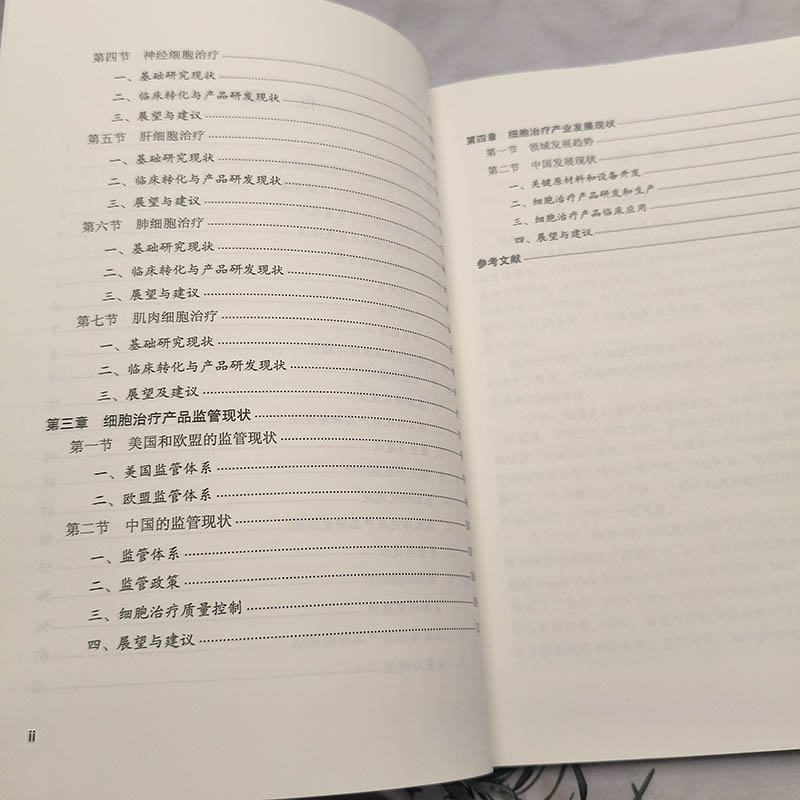 第四节 神经细胞治疗
一、基础研究现状
二、临床转化与产品研发现状
三、展望与建议
第五节 肝细胞治疗
一、基础研究现状
二、临床转化与产品研发现状
三、展望与建议
第六节 肺细胞治疗
一、基础研究现状
二、临床转化与产品研发现状
三、展望与建议
第七节 肌肉细胞治疗
一、基础研究现状
二、临床转化与产品研发现状
三、展望及建议
第三章 细胞治疗产品监管现状
第一节 美国和欧盟的监管现状
一、美国监管体系
二、欧盟监管体系
第二节 中国的监管现状
一、监管体系
二、监管政策
三、细胞治疗质量控制
四、展望与建议
ii
第四章 细胞治疗产业发展现状
第一节 领域发展趋势
第二节 中国发展现状
一、关键原材料和设备开发
二、细胞治疗产品研发和生产
三、细胞治疗产品临床应用
四、展望与建议
参考文献